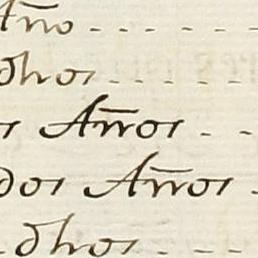 Año - - - - -
dhos - - - - -
s Años - -
dos Años -
dhos - - -